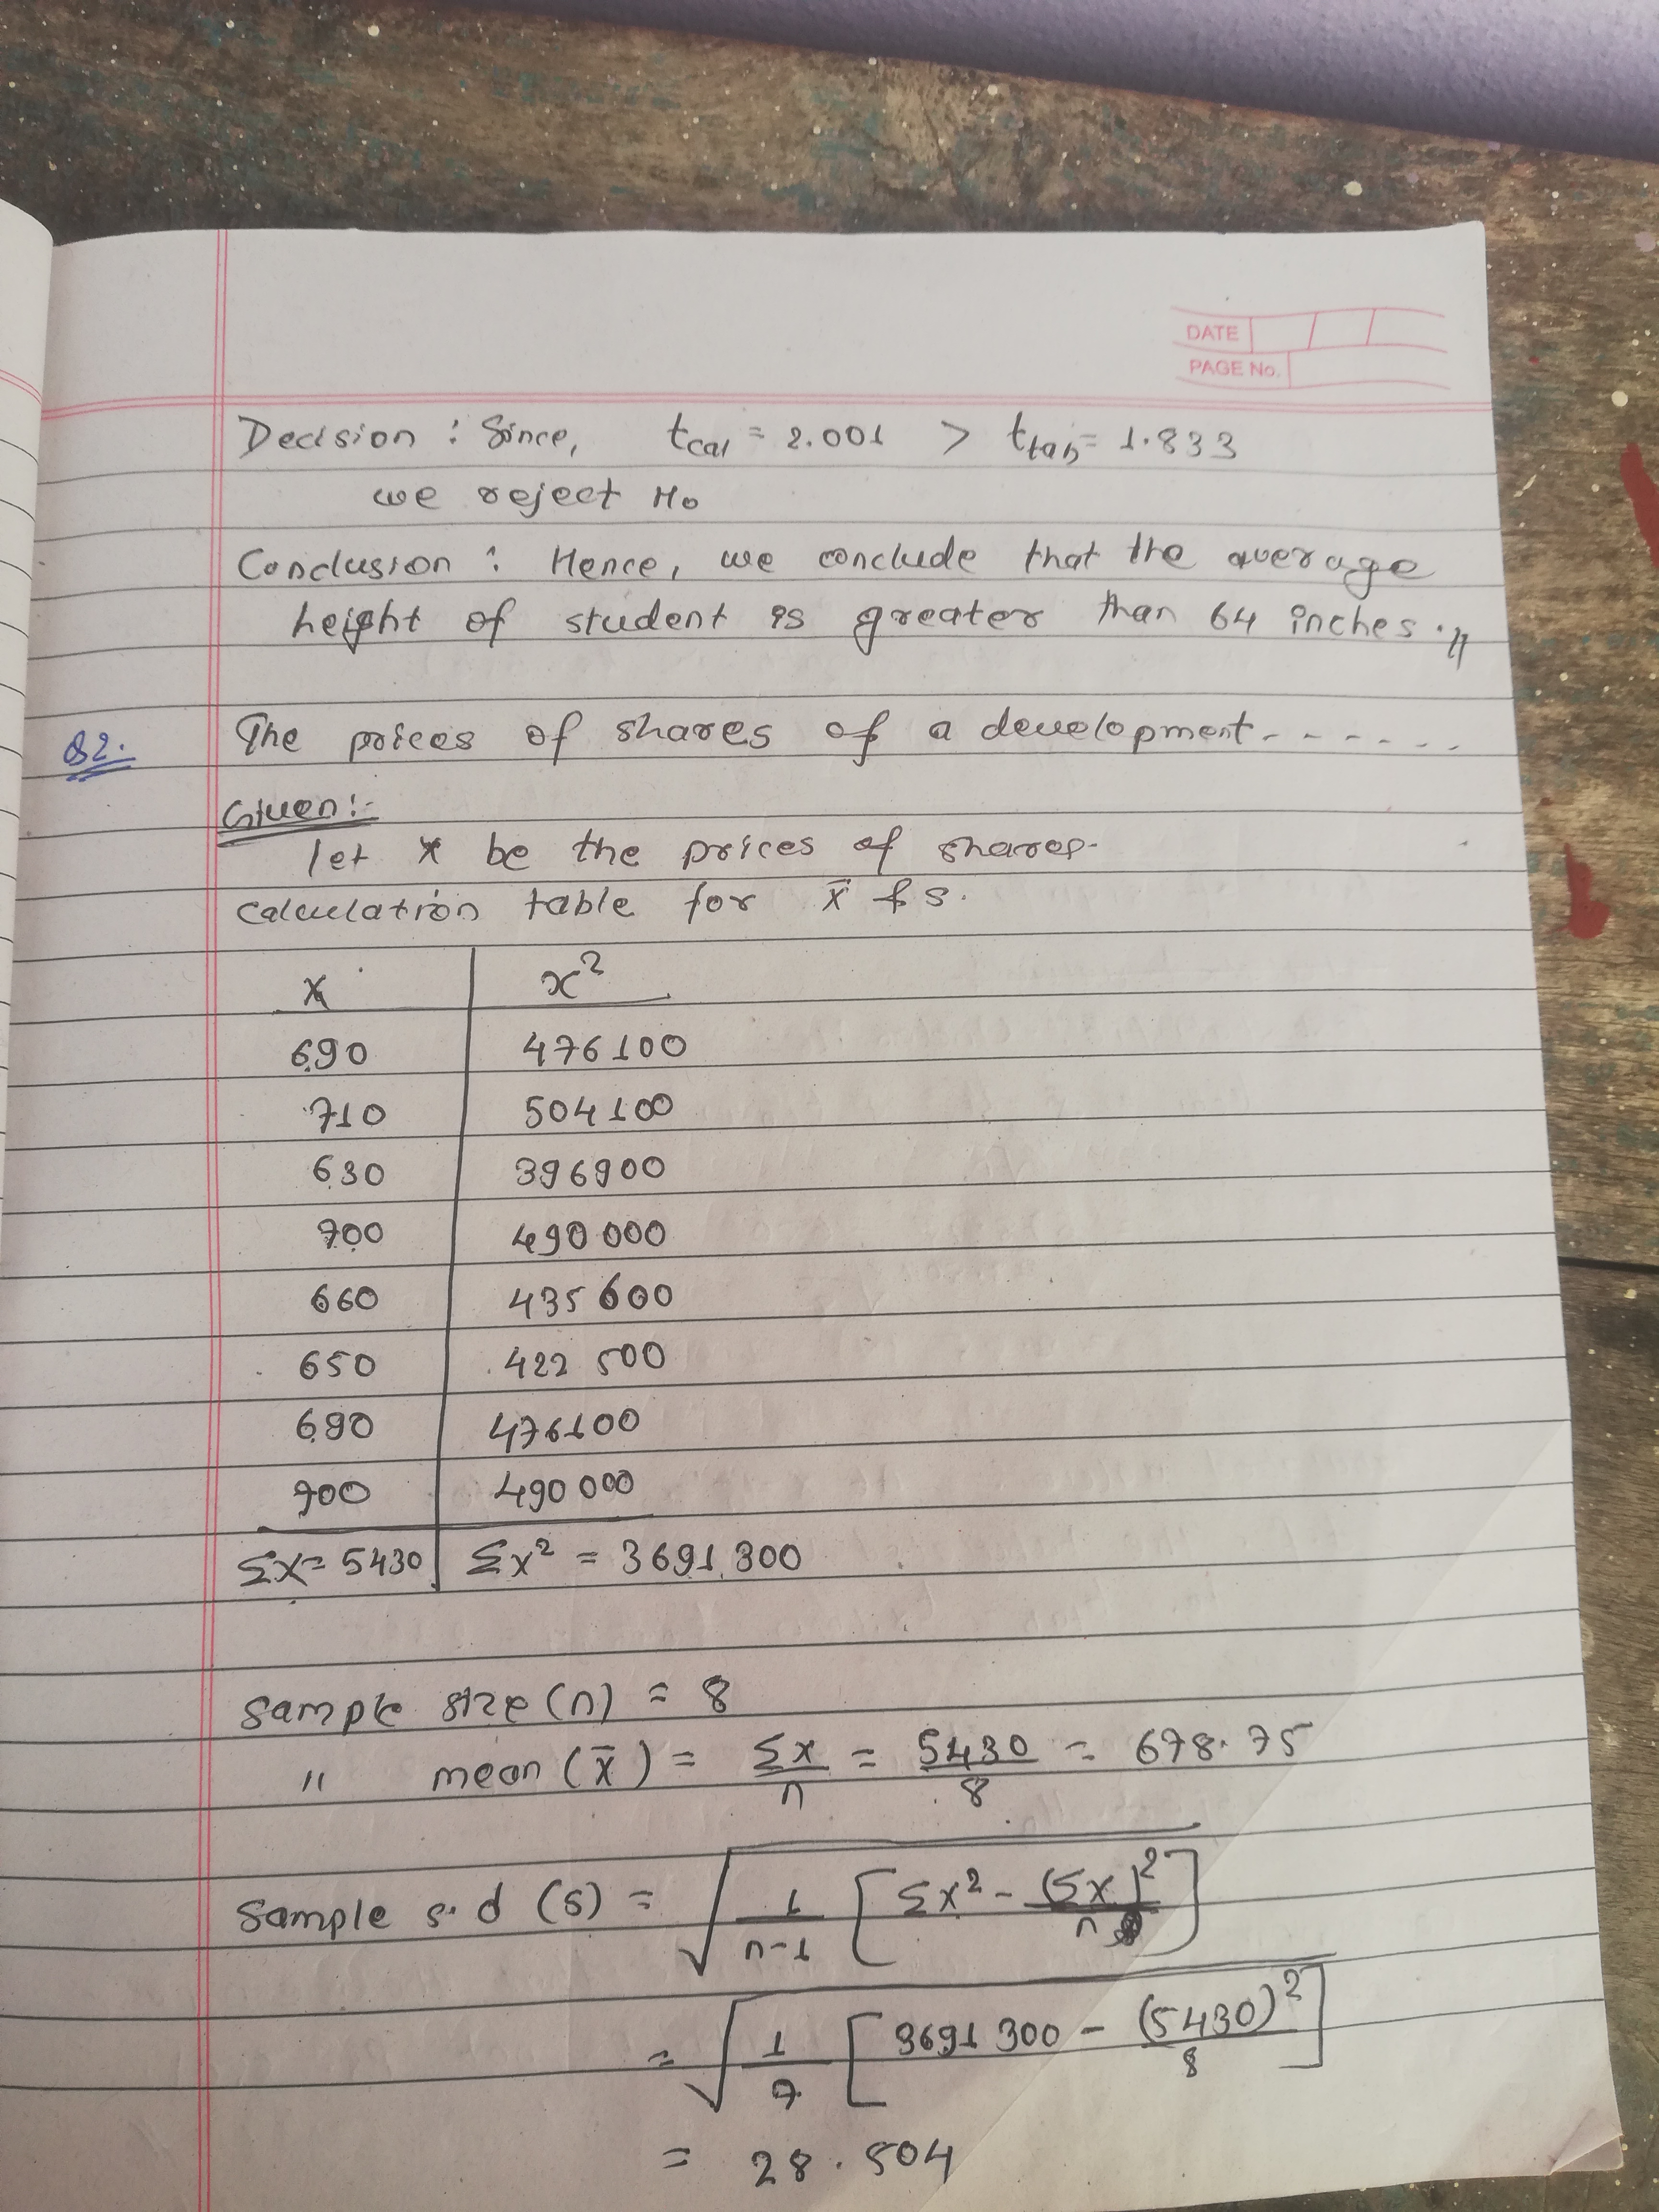 DATE
PAGE No.
Decision : Since, tcal = 2.001 > ttab = 1.833
we reject H₀
Conclusion : Hence, we conclude that the average
height of student is greater than 64 inches.
Q2. The prices of shares of a development.......
Given:-
let x be the prices of shares.
Calculation table for x̄ & s.
x | x²
690 | 476100
710 | 504100
630 | 396900
700 | 490000
660 | 435600
650 | 422500
690 | 476100
700 | 490000
Σx = 5430 | Σx² = 3691300
Sample size (n) = 8
" mean (x̄) = Σx/n = 5430/8 = 678.75
Sample s.d (s) = √(1/(n-1) [Σx² - (Σx)²/n])
= √(1/7 [3691300 - (5430)²/8])
= 28.504